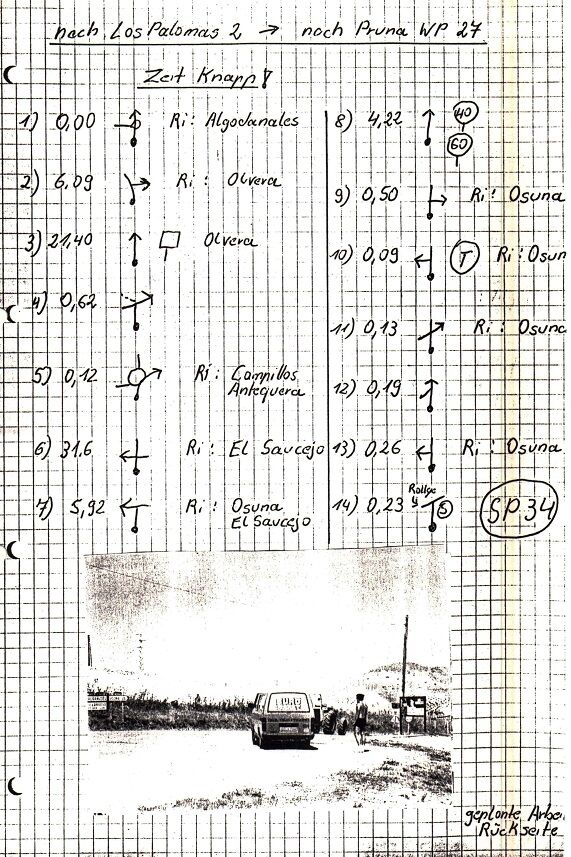 nach Los Palomas 2 → nach Pruna WP 27
Zeit Knapp!
1) 0,00 Ri: Algodanales
2) 6,09 Ri: Olvera
3) 21,40 Olvera
4) 0,62
5) 0,12 Ri: Campillos
Antequera
6) 31.6 Ri: El Saucejo
7) 5,92 Ri: Osuna
El Saucejo
8) 4,22 40
60
9) 0,50 Ri: Osuna
10) 0,09 T Ri: Osun
11) 0,13 Ri: Osuna
12) 0,19
13) 0,26 Ri: Osuna
14) 0,23 S SP 34
geplante Arbei
Rückseite